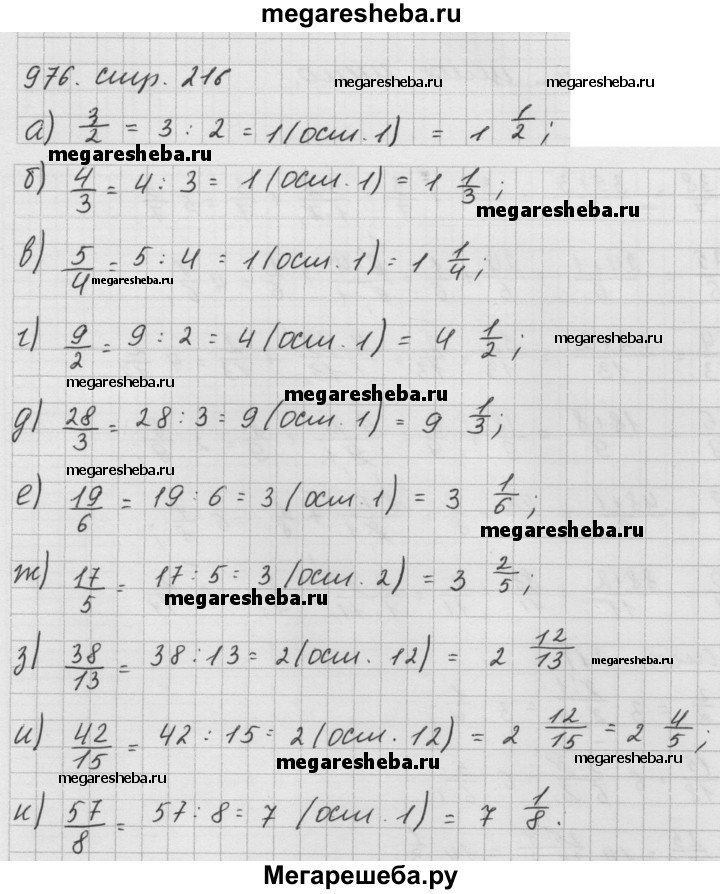 megaresheba.ru
976. стр. 216
megaresheba.ru megaresheba.ru
а) 3/2 = 3 : 2 = 1 (ост. 1) = 1 1/2;
megaresheba.ru
б) 4/3 = 4 : 3 = 1 (ост. 1) = 1 1/3;
megaresheba.ru
в) 5/4 = 5 : 4 = 1 (ост. 1) = 1 1/4;
megaresheba.ru
г) 9/2 = 9 : 2 = 4 (ост. 1) = 4 1/2;
megaresheba.ru
megaresheba.ru
megaresheba.ru
д) 28/3 = 28 : 3 = 9 (ост. 1) = 9 1/3;
megaresheba.ru
е) 19/6 = 19 : 6 = 3 (ост. 1) = 3 1/6;
megaresheba.ru
ж) 17/5 = 17 : 5 = 3 (ост. 2) = 3 2/5;
megaresheba.ru
з) 38/13 = 38 : 13 = 2 (ост. 12) = 2 12/13
megaresheba.ru
и) 42/15 = 42 : 15 = 2 (ост. 12) = 2 12/15 = 2 4/5;
megaresheba.ru
megaresheba.ru
megaresheba.ru
к) 57/8 = 57 : 8 = 7 (ост. 1) = 7 1/8.
Мегарешеба.ру